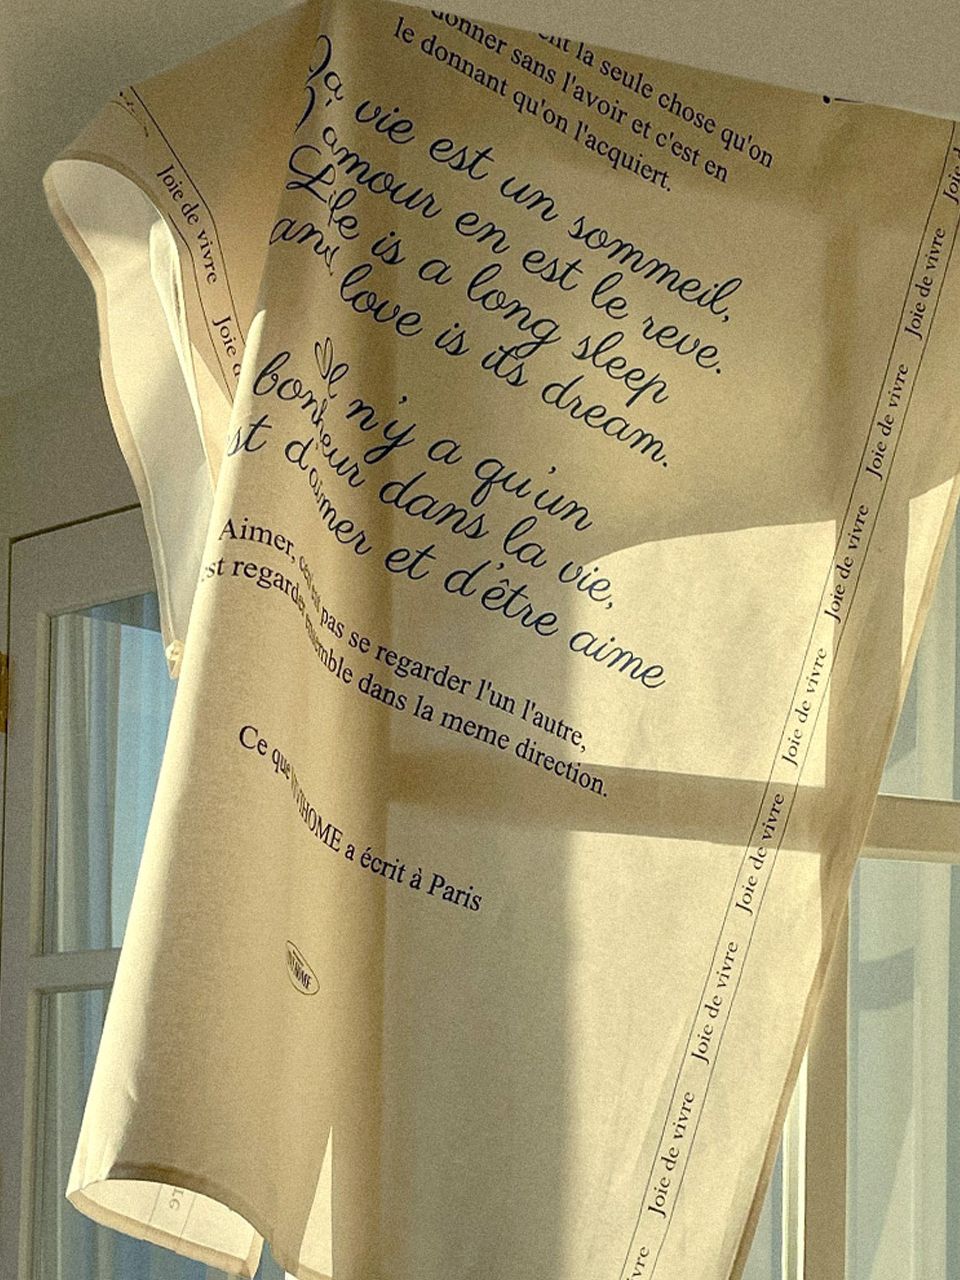 la seule chose qu'on
donner sans l'avoir et c'est en
le donnant qu'on l'acquiert.
La vie est un sommeil,
L'amour en est le reve.
Life is a long sleep
and love is its dream.
Il n'y a qu'un
bonheur dans la vie,
d'aimer et d'être aime
Aimer, pas se regarder l'un l'autre,
regarder ensemble dans la meme direction.
Ce que VIVIHOME a écrit à Paris
Joie de vivre
Joie
Joie de vivre
Joie de vivre
Joie de vivre
Joie de vivre
Joie de vivre
Joie de vivre
Joie de vivre